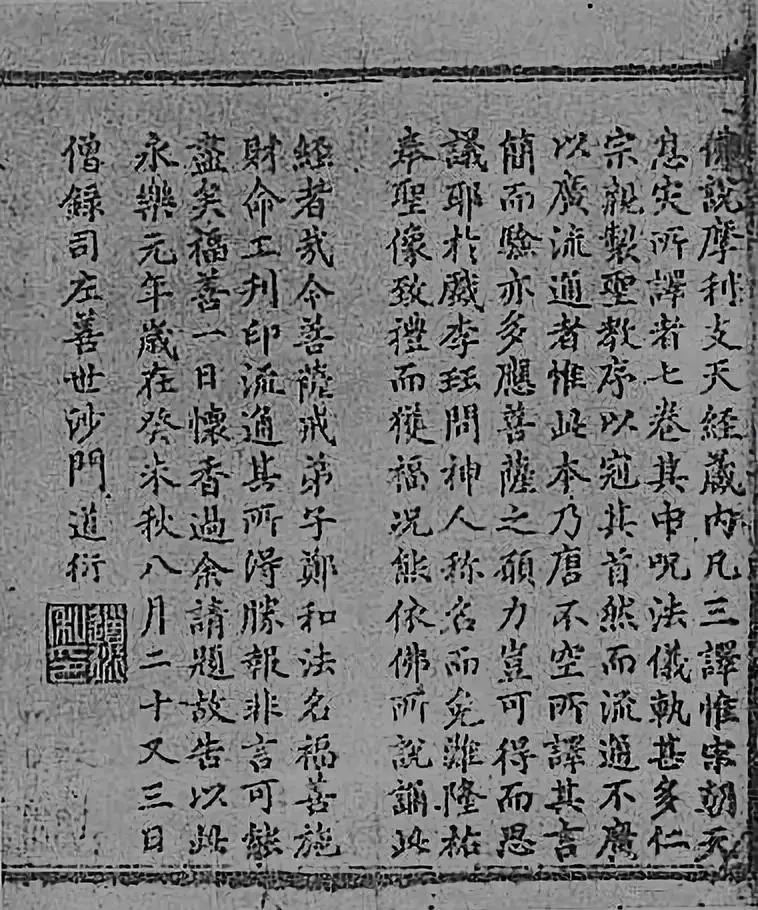 佛說摩利支天經藏內凡三譯惟宋朝天
息灾所譯者七卷其中呪法儀軌甚多仁
宗親製聖教序以冠其首然而流通不廣
以廣流通者惟此本乃唐不空所譯其言
簡而驗亦多應菩薩之願力豈可得而思
議耶於戲李珏問神人称名而免難隆祐
奉聖像致禮而獲福况能依佛所說誦此
經者㢤今菩薩戒弟子鄭和法名福善施
財命工刋印流通其所得勝報非言可能
盡矣福善一日懷香過余請題故告以此
永樂元年歲在癸未秋八月二十又三日
僧錄司左善世沙門道衍